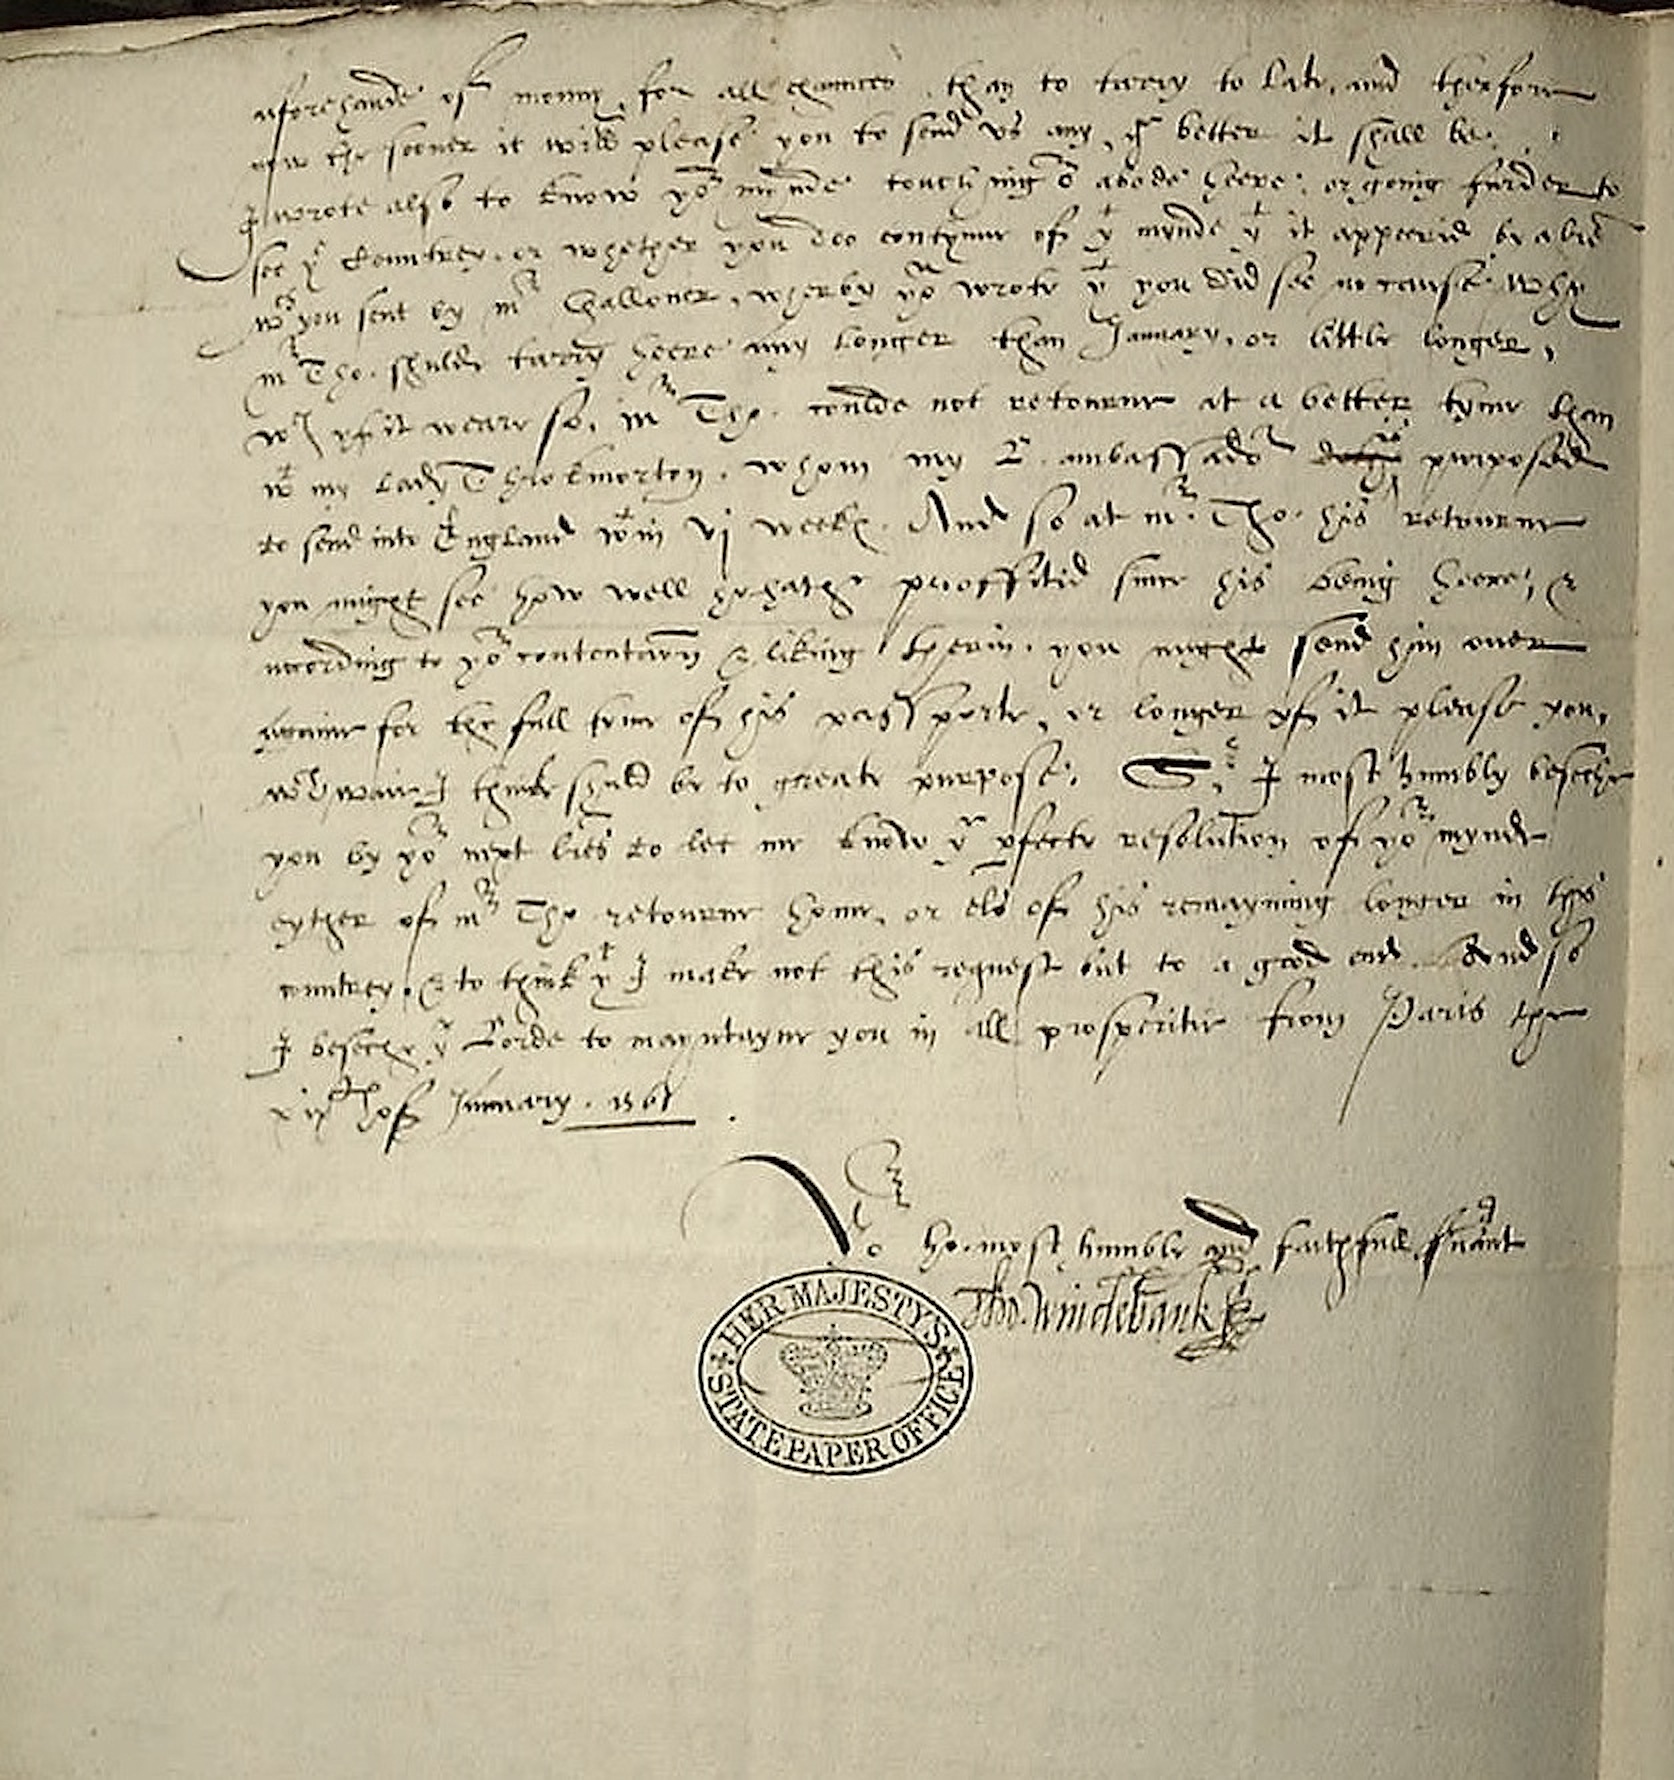 aforehande of monny for all chaunces, than to tarry to late, and therfore
now the sooner it will please you to send us any, ye better it shall be.
I wrote also to know yor minde touching or abode heere, or going furder to
see ye Countrey, or whether you doo contynue of yt mynde yt it appeerid by a lre
wch you sent by mr Challoner, wherby yor wrote yt you did see no cause why
mr Tho. shulde tarry heere any longer than January, or little longer,
wch yf it weare so, mr Tho. coulde not retourne at a better tyme than
wt my Lady Throkmorton, whom my L. ambassador purposed
to send into England wtin vj weekes. And so at mr Tho. his retourne
you might see how well he hathe proffitid since his being heere, &
according to yor contentacon & liking therin, you might send him over
againe for the full tyme of his passporte, or longer yf it please you,
wch waie I thinke shuld be to greate purpose. Sr, I most humbly beseche
you by yor next lres to let me know ye pfecte resolution of yor mynde
eyther of mr Tho. retourne home, or els of his remayning longer in this
countrey, & to think yt I make not this request but to a good end. And so
I beseche ye Lorde to mayntayne you in all prosperitie from Paris the
xixth of January. 1561
Yor ho. most humble and faithfull suant
Tho. Windebank
HER MAJESTYS
STATE PAPER OFFICE